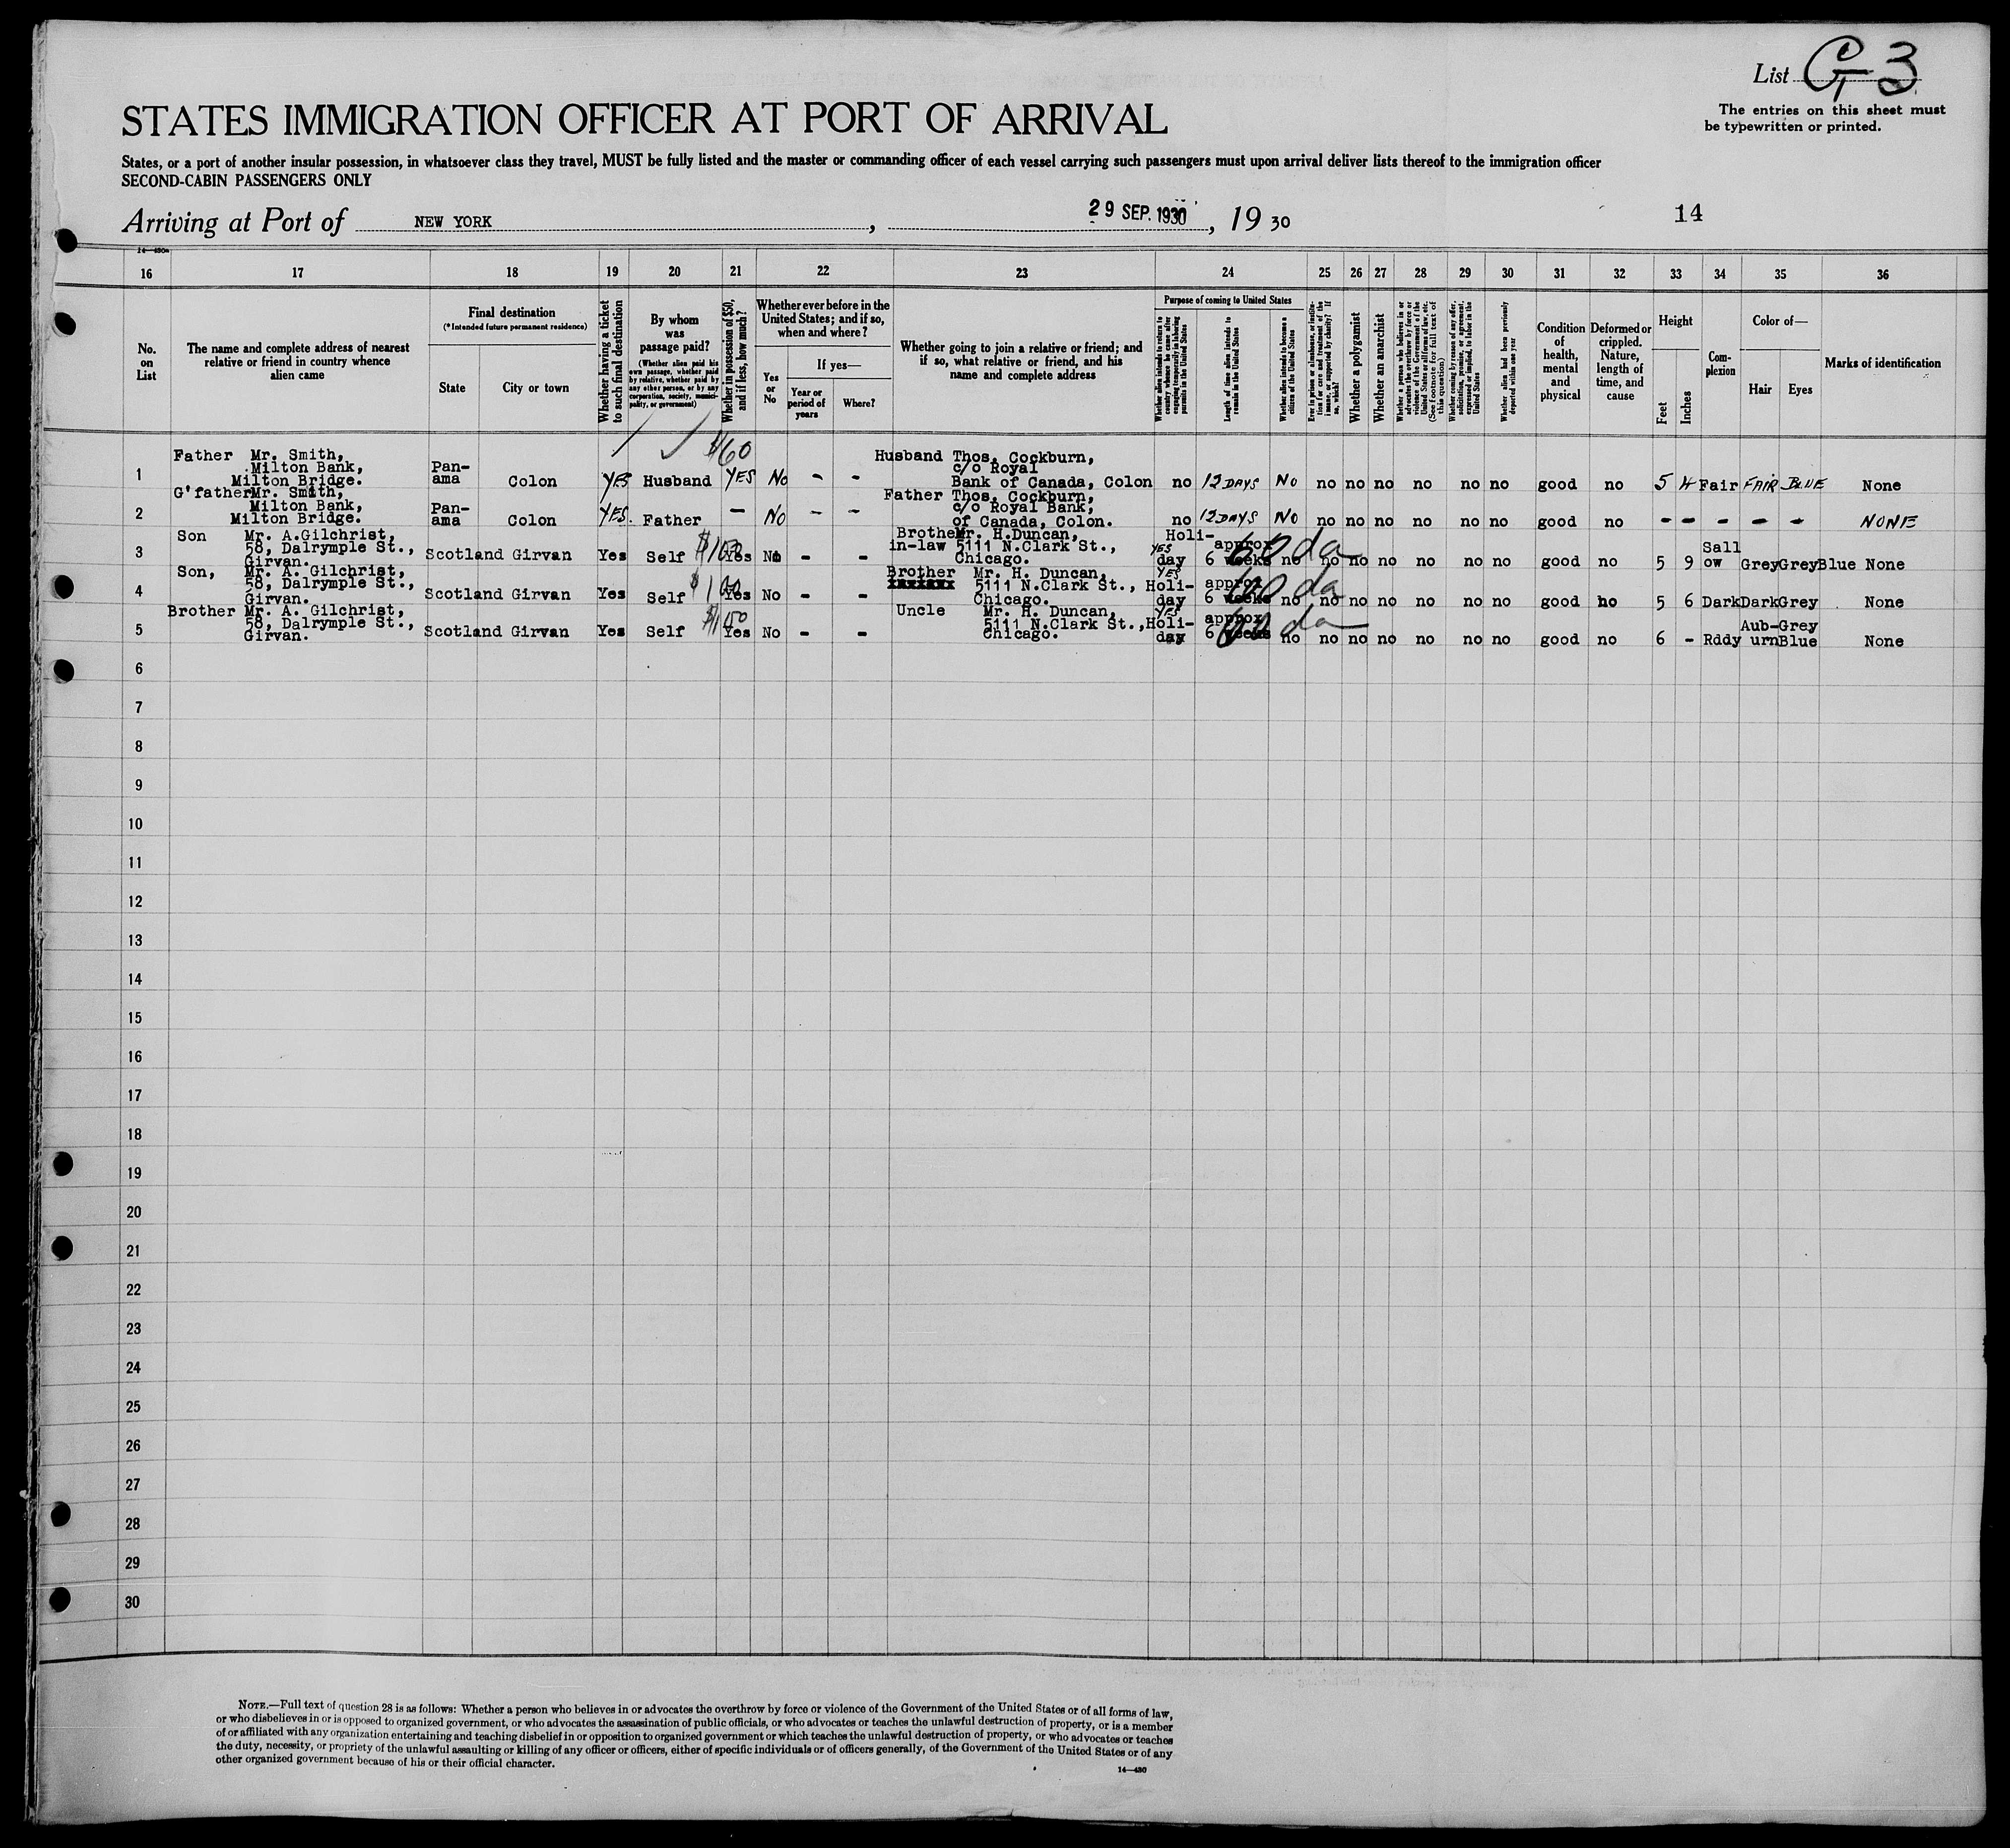 List G-3
The entries on this sheet must
be typewritten or printed.
STATES IMMIGRATION OFFICER AT PORT OF ARRIVAL
States, or a port of another insular possession, in whatsoever class they travel, MUST be fully listed and the master or commanding officer of each vessel carrying such passengers must upon arrival deliver lists thereof to the immigration officer
SECOND-CABIN PASSENGERS ONLY
Arriving at Port of NEW YORK, 29 SEP. 1930, 19 30
14
14—430a
16 17 18 19 20 21 22 23 24 25 26 27 28 29 30 31 32 33 34 35 36
No.
on
List
The name and complete address of nearest
relative or friend in country whence
alien came
Final destination
(*Intended future permanent residence)
State
City or town
Whether having a ticket
to such final destination
By whom
was
passage paid?
(Whether alien paid his
own passage, whether paid
by relative, whether paid by
any other person, or by any
corporation, society, munici-
pality, or government)
Whether in possession of $50,
and if less, how much?
Whether ever before in the
United States; and if so,
when and where?
Yes
or
No
If yes—
Year or
period of
years
Where?
Whether going to join a relative or friend; and
if so, what relative or friend, and his
name and complete address
Purpose of coming to United States
Whether alien intends to return to
country whence he came after
engaging temporarily in laboring
pursuits in the United States
Length of time alien intends to
remain in the United States
Whether alien intends to become a
citizen of the United States
Ever in prison or almshouse, or institu-
tion for care and treatment of the
insane, or supported by charity? If
so, which?
Whether a polygamist
Whether an anarchist
Whether a person who believes in or
advocates the overthrow by force or
violence of the Government of the
United States or all forms of law, etc.
(See footnote for full text of
this question)
Whether coming by reason of any offer,
solicitation, promise, or agreement,
expressed or implied, to labor in the
United States
Whether alien had been previously
deported within one year
Condition
of
health,
mental
and
physical
Deformed or
crippled.
Nature,
length of
time, and
cause
Height
Feet
Inches
Com-
plexion
Color of—
Hair
Eyes
Marks of identification
1 Father Mr. Smith,
Milton Bank,
Milton Bridge. Pan-
ama Colon YES Husband $60 YES No - - Husband Thos. Cockburn,
c/o Royal
Bank of Canada, Colon no 12 DAYS NO no no no no no no good no 5 4 Fair FAIR BLUE None
2 G'father Mr. Smith,
Milton Bank,
Milton Bridge. Pan-
ama Colon YES. Father - NO - - Father Thos. Cockburn,
c/o Royal Bank,
of Canada, Colon. no 12 DAYS NO no no no no no no good no - - - - - NONE
3 Son Mr. A.Gilchrist,
58, Dalrymple St.,
Girvan. Scotland Girvan Yes Self $100 Yes No - - Brother Mr. H.Duncan,
in-law 5111 N.Clark St.,
Chicago. YES Holi-
day approx
6 weeks 60 da no no no no no no no good no 5 9 Sall
ow Grey GreyBlue None
4 Son, Mr. A. Gilchrist,
58, Dalrymple St.,
Girvan. Scotland Girvan Yes Self $100 Yes No - - Brother Mr. H. Duncan,
5111 N.Clark St.,
Chicago. YES Holi-
day approx
6 weeks 60 da no no no no no no no good no 5 6 Dark Dark Grey None
5 Brother Mr. A. Gilchrist,
58, Dalrymple St.,
Girvan. Scotland Girvan Yes Self Yes No - - Uncle Mr. H. Duncan,
5111 N.Clark St.,
Chicago. YES Holi-
day approx
6 weeks 60 da no no no no no no no good no 6 - Rddy Aub-
urn Grey
Blue None
6
7
8
9
10
11
12
13
14
15
16
17
18
19
20
21
22
23
24
25
26
27
28
29
30
NOTE.—Full text of question 28 is as follows: Whether a person who believes in or advocates the overthrow by force or violence of the Government of the United States or of all forms of law,
or who disbelieves in or is opposed to organized government, or who advocates the assassination of public officials, or who advocates or teaches the unlawful destruction of property, or is a member
of or affiliated with any organization entertaining and teaching disbelief in or opposition to organized government or which teaches the unlawful destruction of property, or who advocates or teaches
the duty, necessity, or propriety of the unlawful assaulting or killing of any officer or officers, either of specific individuals or of officers generally, of the Government of the United States or of any
other organized government because of his or their official character.
14—430